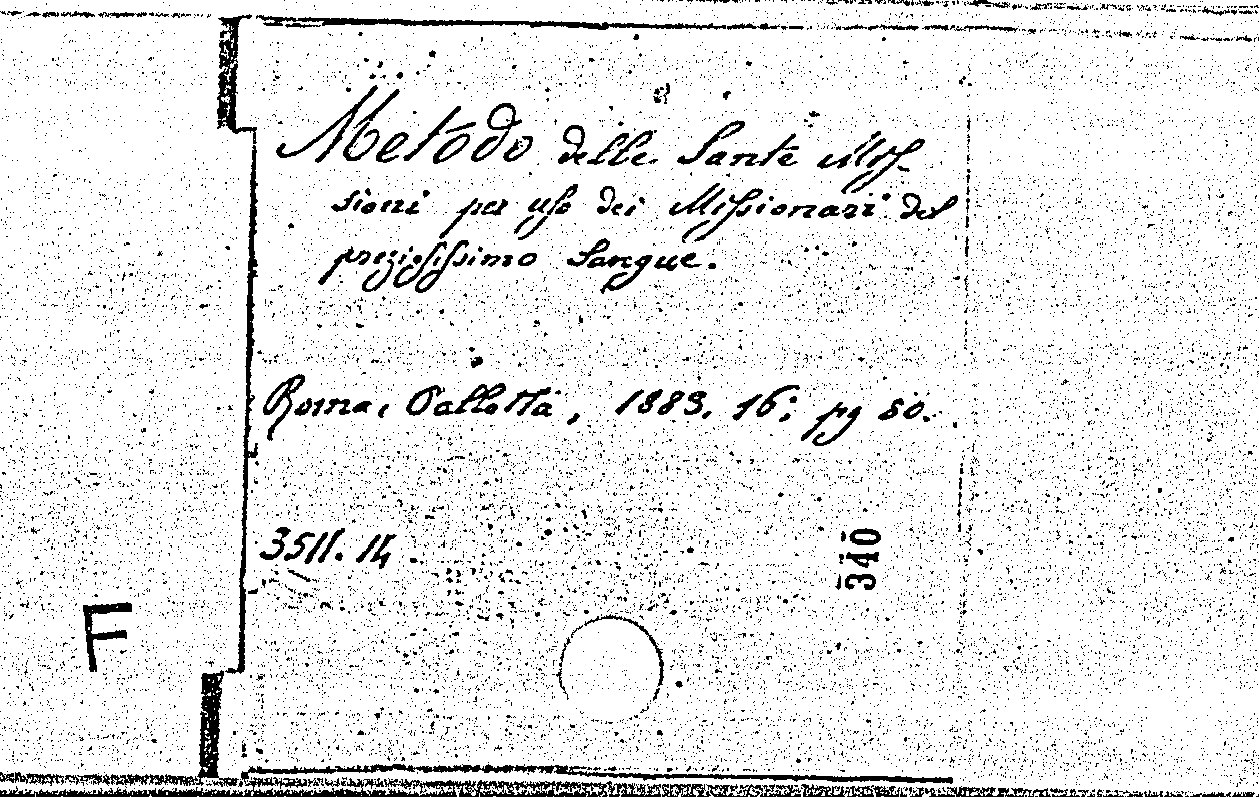 Metodo delle Sante Mis-
sioni per uso dei Missionari del
preziosissimo Sangue.
Roma, Pallotta, 1883. 16; pg 80.
3511. 14
340
F